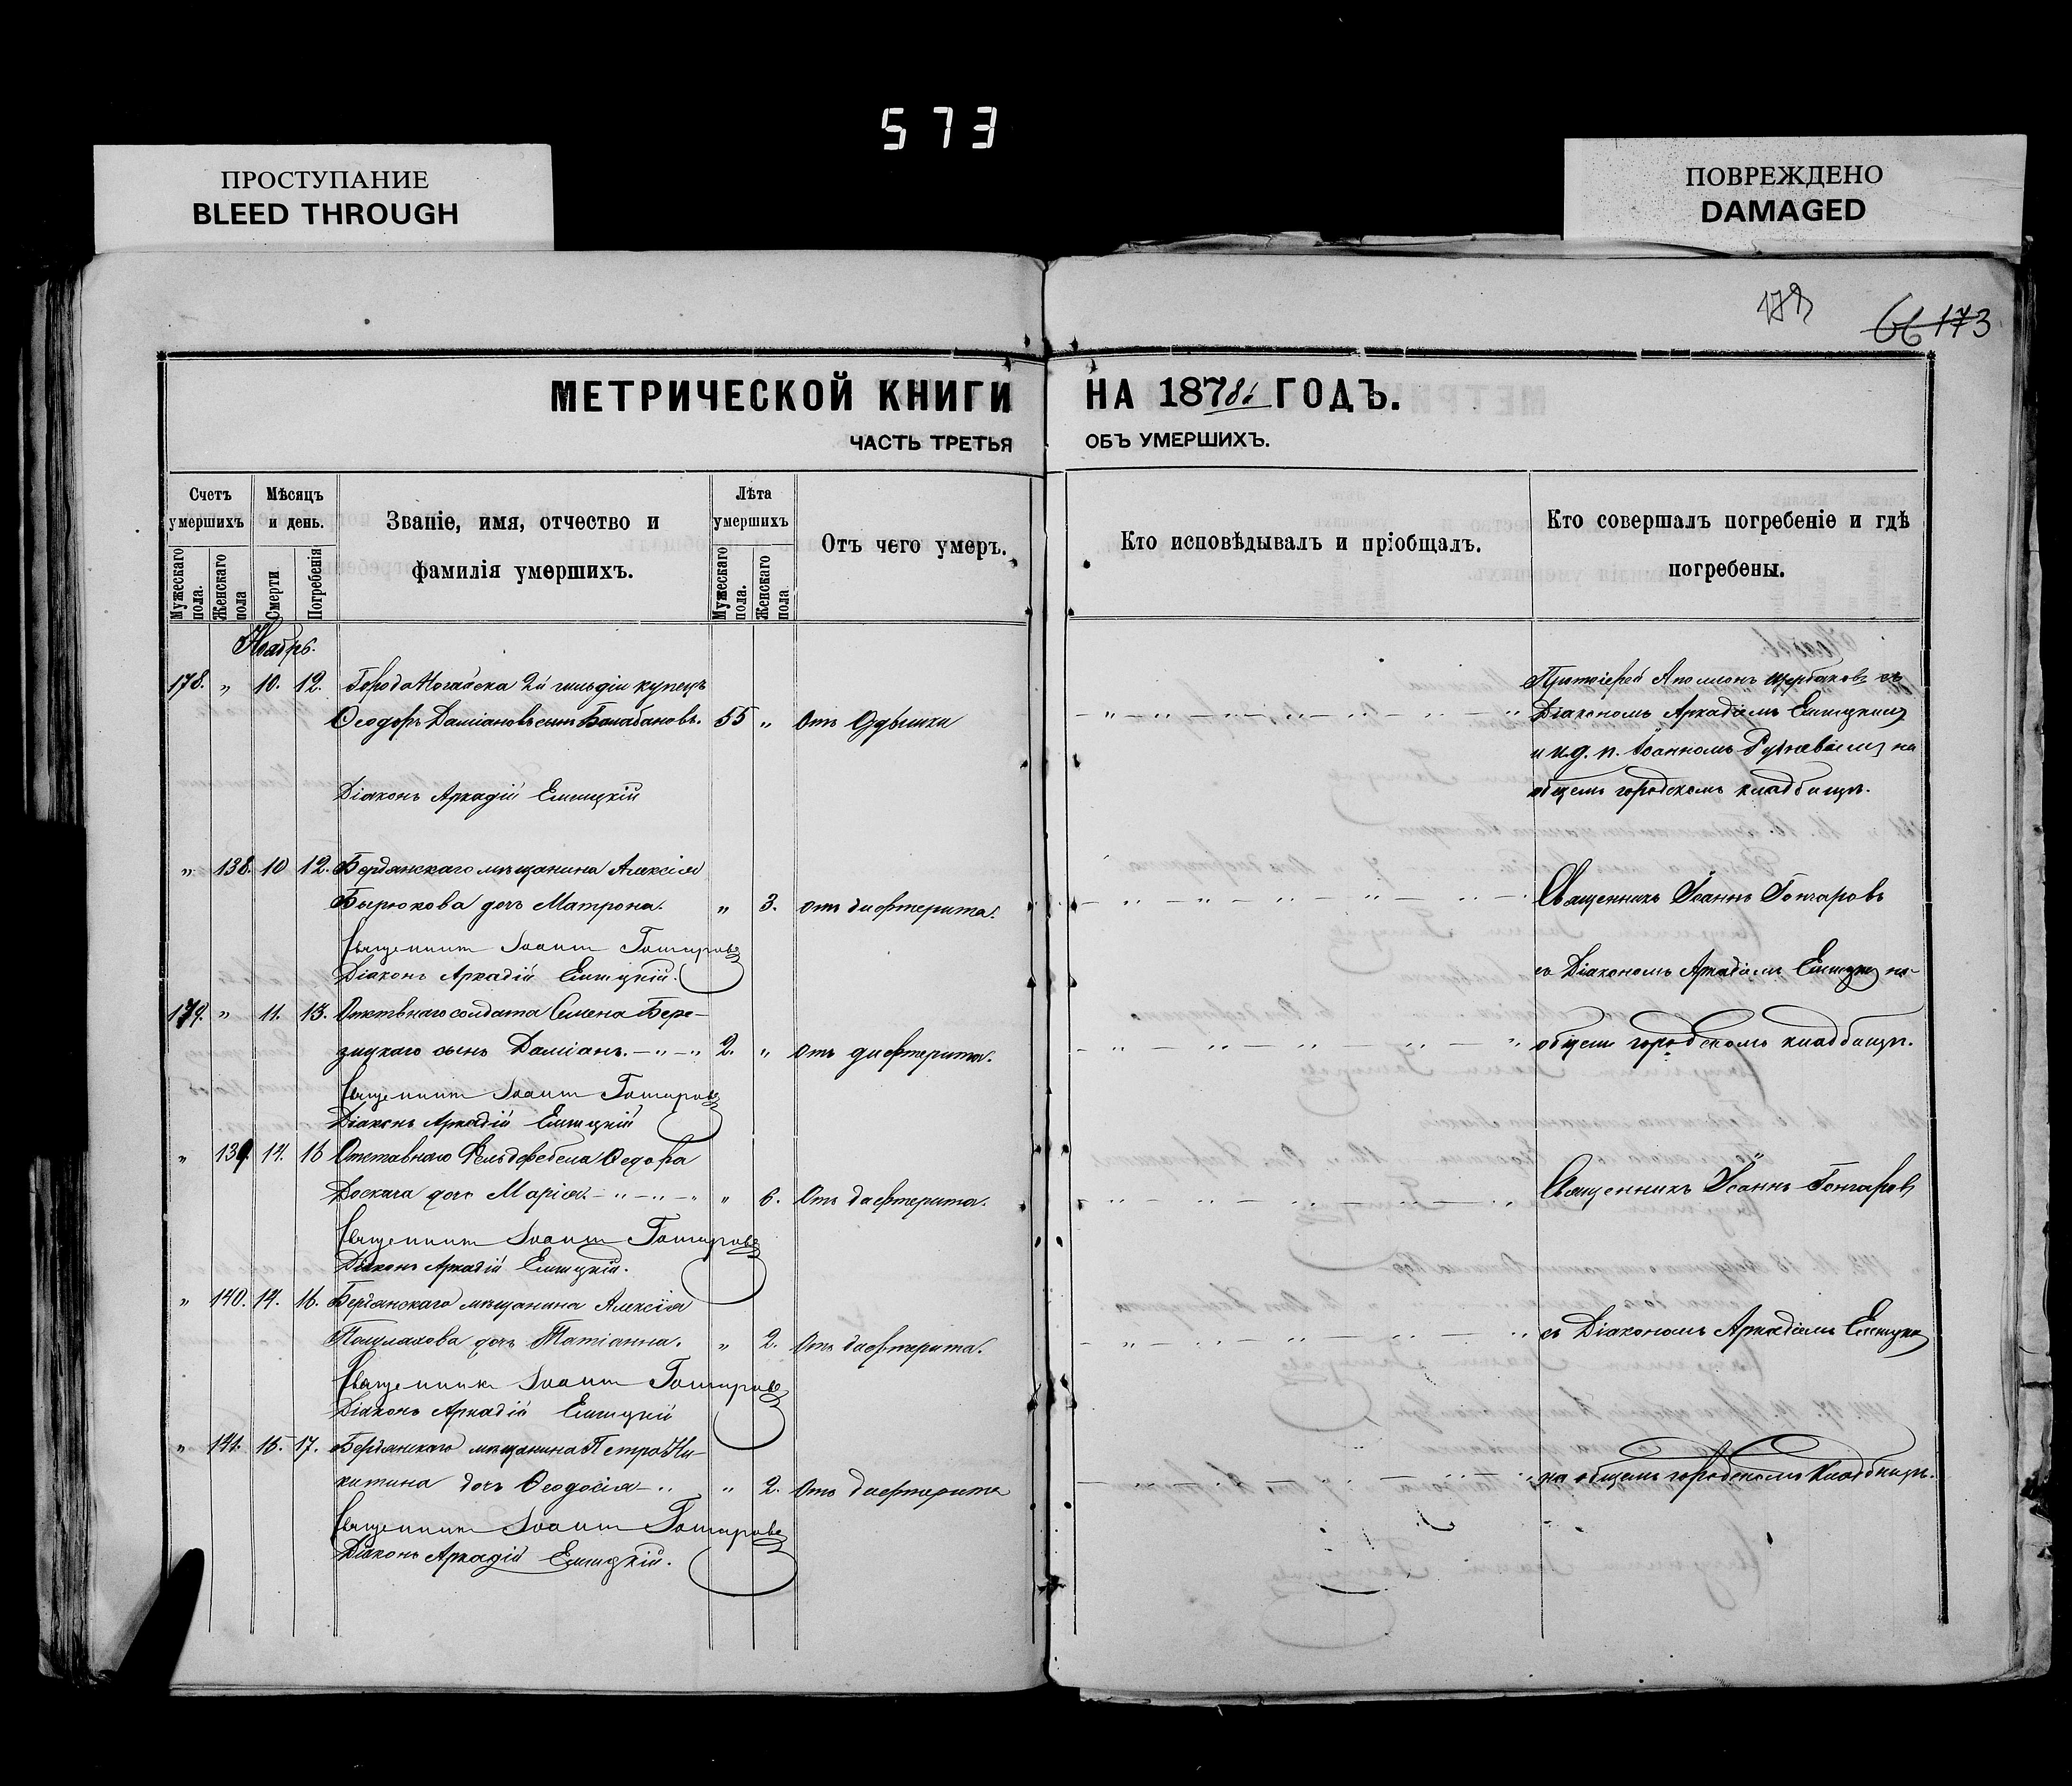 573
ПРОСТУПАНИЕ
BLEED THROUGH
ПОВРЕЖДЕНО
DAMAGED
66 173
МЕТРИЧЕСКОЙ КНИГИ
НА 1878 ГОДЪ.
ЧАСТЬ ТРЕТЬЯ
ОБЪ УМЕРШИХЪ.
Счетъ умершихъ
Мужескаго пола.
Женскаго пола
Мѣсяцъ и день.
Смерти
Погребенія
Званіе, имя, отчество и
фамилія умершихъ.
Лѣта умершихъ
Мужескаго пола.
Женскаго пола
Отъ чего умеръ.
Кто исповѣдывалъ и пріобщалъ.
Кто совершалъ погребеніе и гдѣ
погребены.
Ноябрь.
178. " 10. 12. Города Ногайска 2й гильдіи купецъ
Ѳеодоръ Даміановъ сынъ Балабановъ. 55 " Отъ Одышки
Діаконъ Аркадій
Протоіерей Аполлонъ Щербаковъ съ
Діакономъ Аркадіемъ
общемъ городскомъ кладбищѣ.
" 138. 10 12. Бердянскаго мѣщанина Алексія
Бирюкова дочь Матрона. " 3. отъ дифтерита.
Священникъ Іоаннъ Гончаровъ
Діаконъ Аркадій
Священникъ Іоаннъ Гончаровъ
съ Діакономъ Аркадіемъ
179. " 11. 13. солдата Семена Бере-
зицкаго сынъ Даміанъ. 2. " отъ дифтерита.
Священникъ Іоаннъ Гончаровъ
Діаконъ Аркадій
общемъ городскомъ кладбищѣ.
" 139. 14. 16 Отставнаго Фельдфебеля Ѳедора
дочь Марія " 6. Отъ дифтерита.
Священникъ Іоаннъ Гончаровъ
Діаконъ Аркадій
Священникъ Іоаннъ Гончаровъ
" 140. 14. 16. Бердянскаго мѣщанина Алексія
дочь Татіанна. " 2. Отъ дифтерита.
Священникъ Іоаннъ Гончаровъ
Діаконъ Аркадій
съ Діакономъ Аркадіемъ
" 141. 15. 17. Бердянскаго мѣщанина Петра Ни-
китина дочь Ѳеодосія " 2. Отъ дифтерита
Священникъ Іоаннъ Гончаровъ
Діаконъ Аркадій
на общемъ городскомъ кладбищѣ.